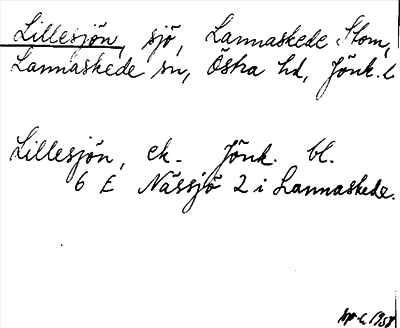 Lillesjön, sjö, Lannaskede Stom,
Lannaskede sn, Östra hd, Jönk. l
Lillesjön, ek. Jönk. bl.
6 E Nässjö 2 i Lannaskede.
1958